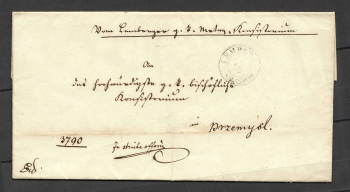 Vom Lemberger g. k. Metrop. Konsistorium
LEMBERG
An
das hochwürdigste g. k. bischöfliche
Konsistorium
in
Przemysl.
3790